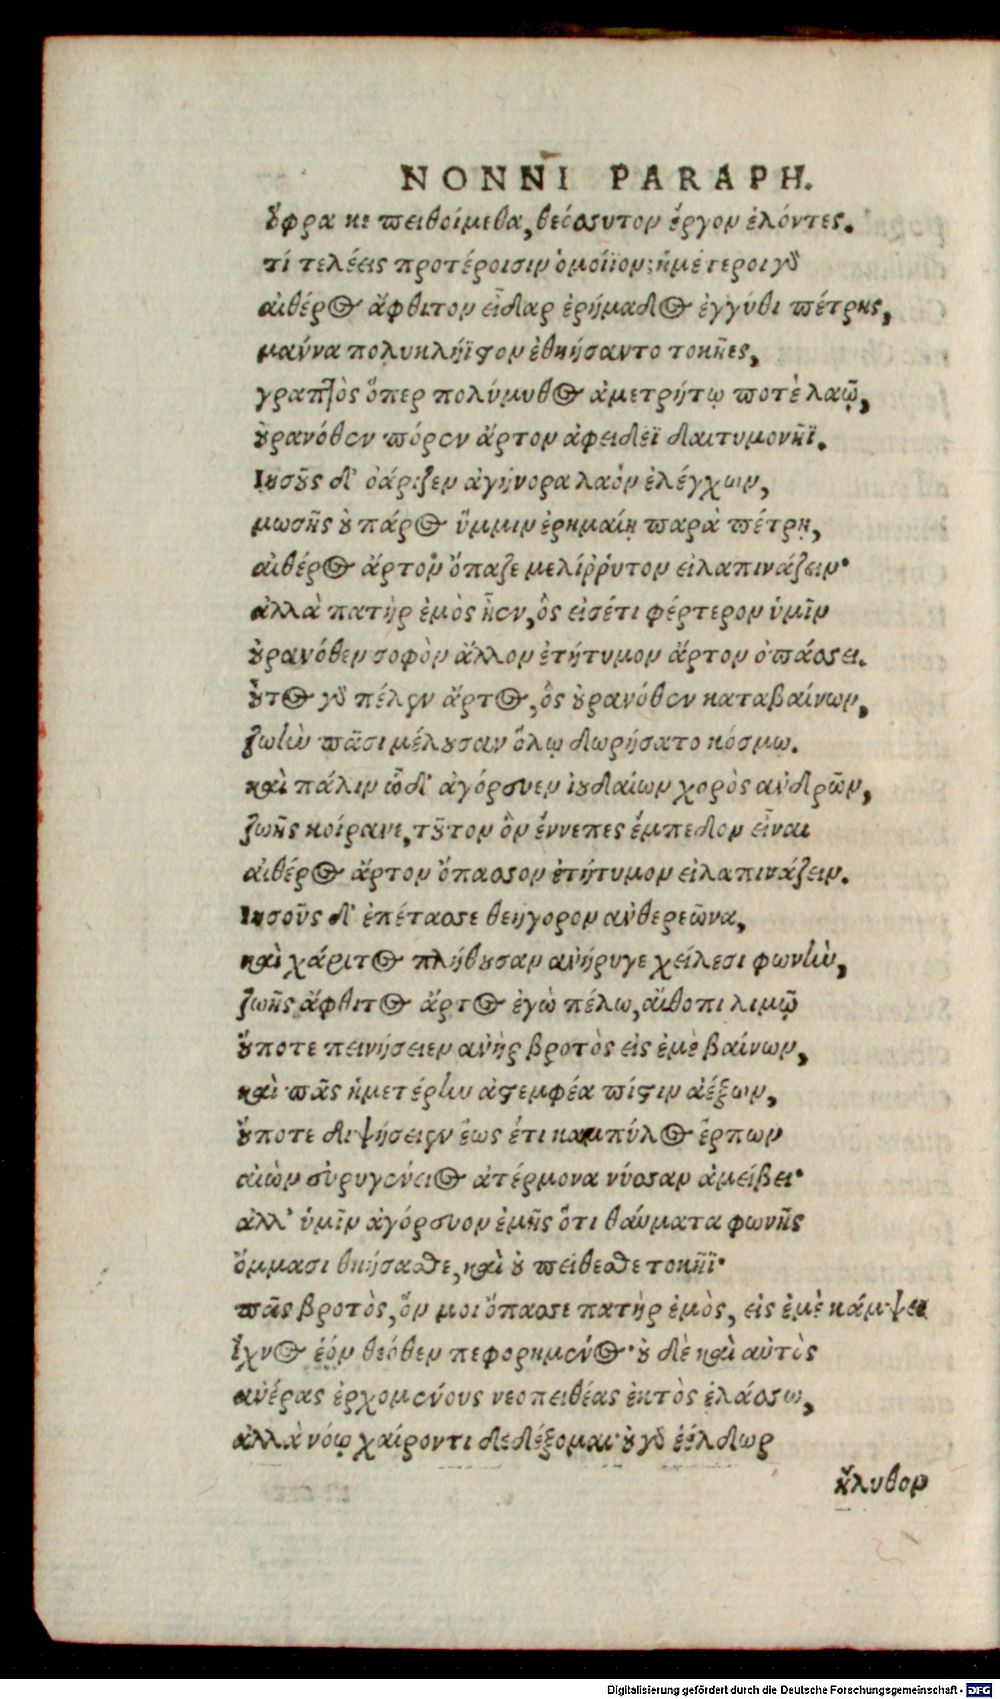 NONNI PARAPH.
ὄφρα κε πειθοίμεθα, θεόσυτον ἔργον ἑλόντες.
τί τελέεις προτέροισιν ὁμοίϊον; ἡμέτεροι γὸ
αἰθέρος ἄφθιτον εἶδαρ ἐρήμαδος ἐγγύθι πέτρης,
μαύνα πολυκλήϊστον ἐθηήσαντο τοκῆες,
γραπτὸς ὅπερ πολύμυθος ἀμετρήτῳ ποτὲ λαῷ,
οὐρανόθεν πόρεν ἄρτον ἀφειδέϊ δαιτυμονῆϊ.
Ιησοῦς δ' ὀάριζεν ἀγήνορα λαὸν ἐλέγχων,
μωσῆς οὐ πάρος ὔμμιν ἐρημαίη παρὰ πέτρη,
αἰθέρος ἄρτον ὄπαζε μελίῤῥυτον εἰλαπινάζειν·
ἀλλὰ πατὴρ ἐμὸς ἧεν, ὃς εἰσέτι φέρτερον ὑμῖν
οὐρανόθεν σοφὸν ἄλλον ἐτήτυμον ἄρτον ὀπάσσει.
οὗτος γὸ πέλεν ἄρτος, ὃς οὐρανόθεν καταβαίνων,
ζωὴν πᾶσι μέλουσαν ὅλῳ δωρήσατο κόσμω.
καὶ πάλιν ὧδ' ἀγόρευεν ἰουδαίων χορὸς ἀνδρῶν,
ζωῆς κοίρανε, τοῦτον ὃν ἔννεπες ἔμπεδον εἶναι
αἰθέρος ἄρτον ὄπασσον ἐτήτυμον εἰλαπινάζειν.
Ιησοῦς δ' ἐπέτασσε θεηγορον ἀνθερεῶνα,
καὶ χάριτος πλήθουσαν ἀνήρυγε χείλεσι φωνὴν,
ζωῆς ἄφθιτος ἄρτος ἐγὼ πέλω, αἴθοπι λιμῷ
οὔποτε πεινήσειεν ἀνὴρ βροτὸς εἰς ἐμὲ βαίνων,
καὶ πᾶς ἡμετέρην ἀστεμφέα πίστιν ἀέξων,
οὔποτε διψήσειεν ἕως ἔτι καμπύλος ἕρπων
αἰὼν εὐρυγένειος ἀτέρμονα νύσσαν ἀμείβει·
ἀλλ' ὑμῖν ἀγόρευον ἐμῆς ὅτι θαύματα φωνῆς
ὄμμασι θηήσασθε, καὶ οὐ πείθεσθε τοκῆϊ·
πᾶς βροτὸς, ὅν μοι ὄπασσε πατὴρ ἐμὸς, εἰς ἐμὲ κάμψει
ἴχνος ἑὸν θεόθεν πεφορημένος· οὐ δὲ καὶ αὐτὸς
ἀνέρας ἐρχομένους νεοπειθέας ἐκτὸς ἐλάσσω,
ἀλλὰ νόῳ χαίροντι δεδέξομαι· οὐ γὸ ἐέλδωρ
ἤλυθον
Digitalisierung gefördert durch die Deutsche Forschungsgemeinschaft - DFG